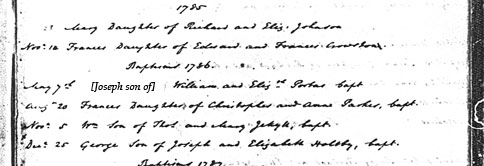 1785
Mary Daughter of Richard and Eliz. Johnson
Nov: 10 Frances Daughter of Edward and Frances
Baptisms 1786.
May 7th [Joseph son of] William and Elizth bapt
Aug: 20 Frances Daughter of Christopher and Anne Parker, bapt.
Nov: 5 Wm Son of Thos and Mary Jekyll, bapt.
Dec: 25 George Son of Joseph and Elizabeth bapt.
Baptisms 1787